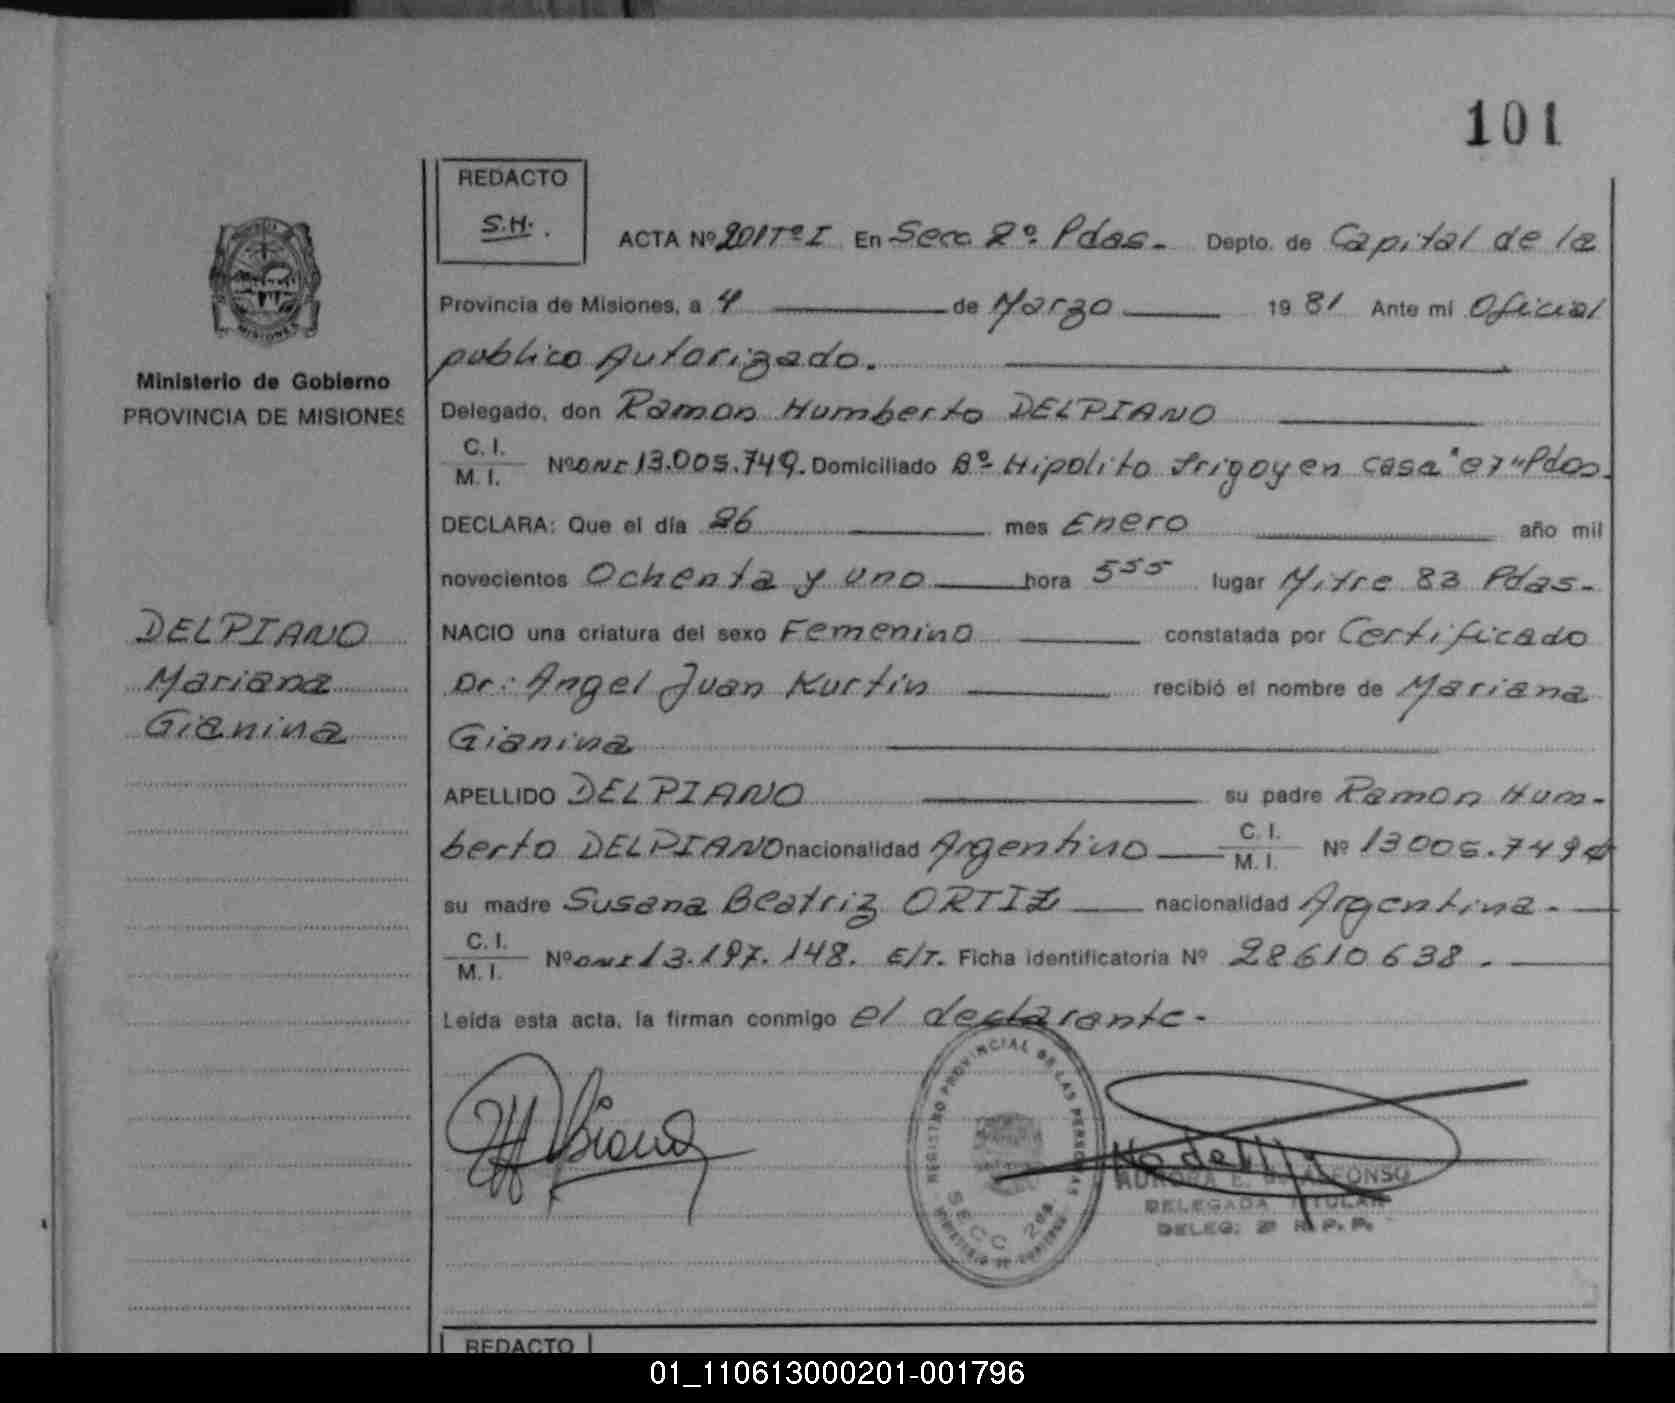 101
REDACTO
S.H.
ACTA Nº 201 Tº I En Secc 2º Pdas. Depto. de Capital de la
Provincia de Misiones, a 4 de Marzo 1981 Ante mi Oficial
publico Autorizado.
Ministerio de Gobierno
PROVINCIA DE MISIONES
Delegado, don Ramon Humberto DELPIANO
C. I.
M. I.
Nº DNI 13.005.749. Domiciliado Bº Hipolito Irigoyen casa "67" Pdas.
DECLARA: Que el día 26 mes Enero año mil
novecientos Ochenta y uno hora 5⁵⁵ lugar Mitre 83 Pdas-
DELPIANO
Mariana
Gianina
NACIO una criatura del sexo Femenino constatada por Certificado
Dr: Angel Juan Kurtin recibió el nombre de Mariana
Gianina
APELLIDO DELPIANO su padre Ramon Hum-
berto DELPIANO nacionalidad Argentino C. I.
M. I. Nº 13005.749
su madre Susana Beatriz ORTIZ nacionalidad Argentina.
C. I.
M. I.
Nº DNI 13.197.148. E/T. Ficha identificatoria Nº 28610638.
Leída esta acta, la firman conmigo el declarante.
REGISTRO PROVINCIAL DE LAS PERSONAS
SECC 2da.
AURORA E. ALFONSO
DELEGADA TITULAR
DELEG. 2ª R. P. P.
REDACTO
01_110613000201-001796